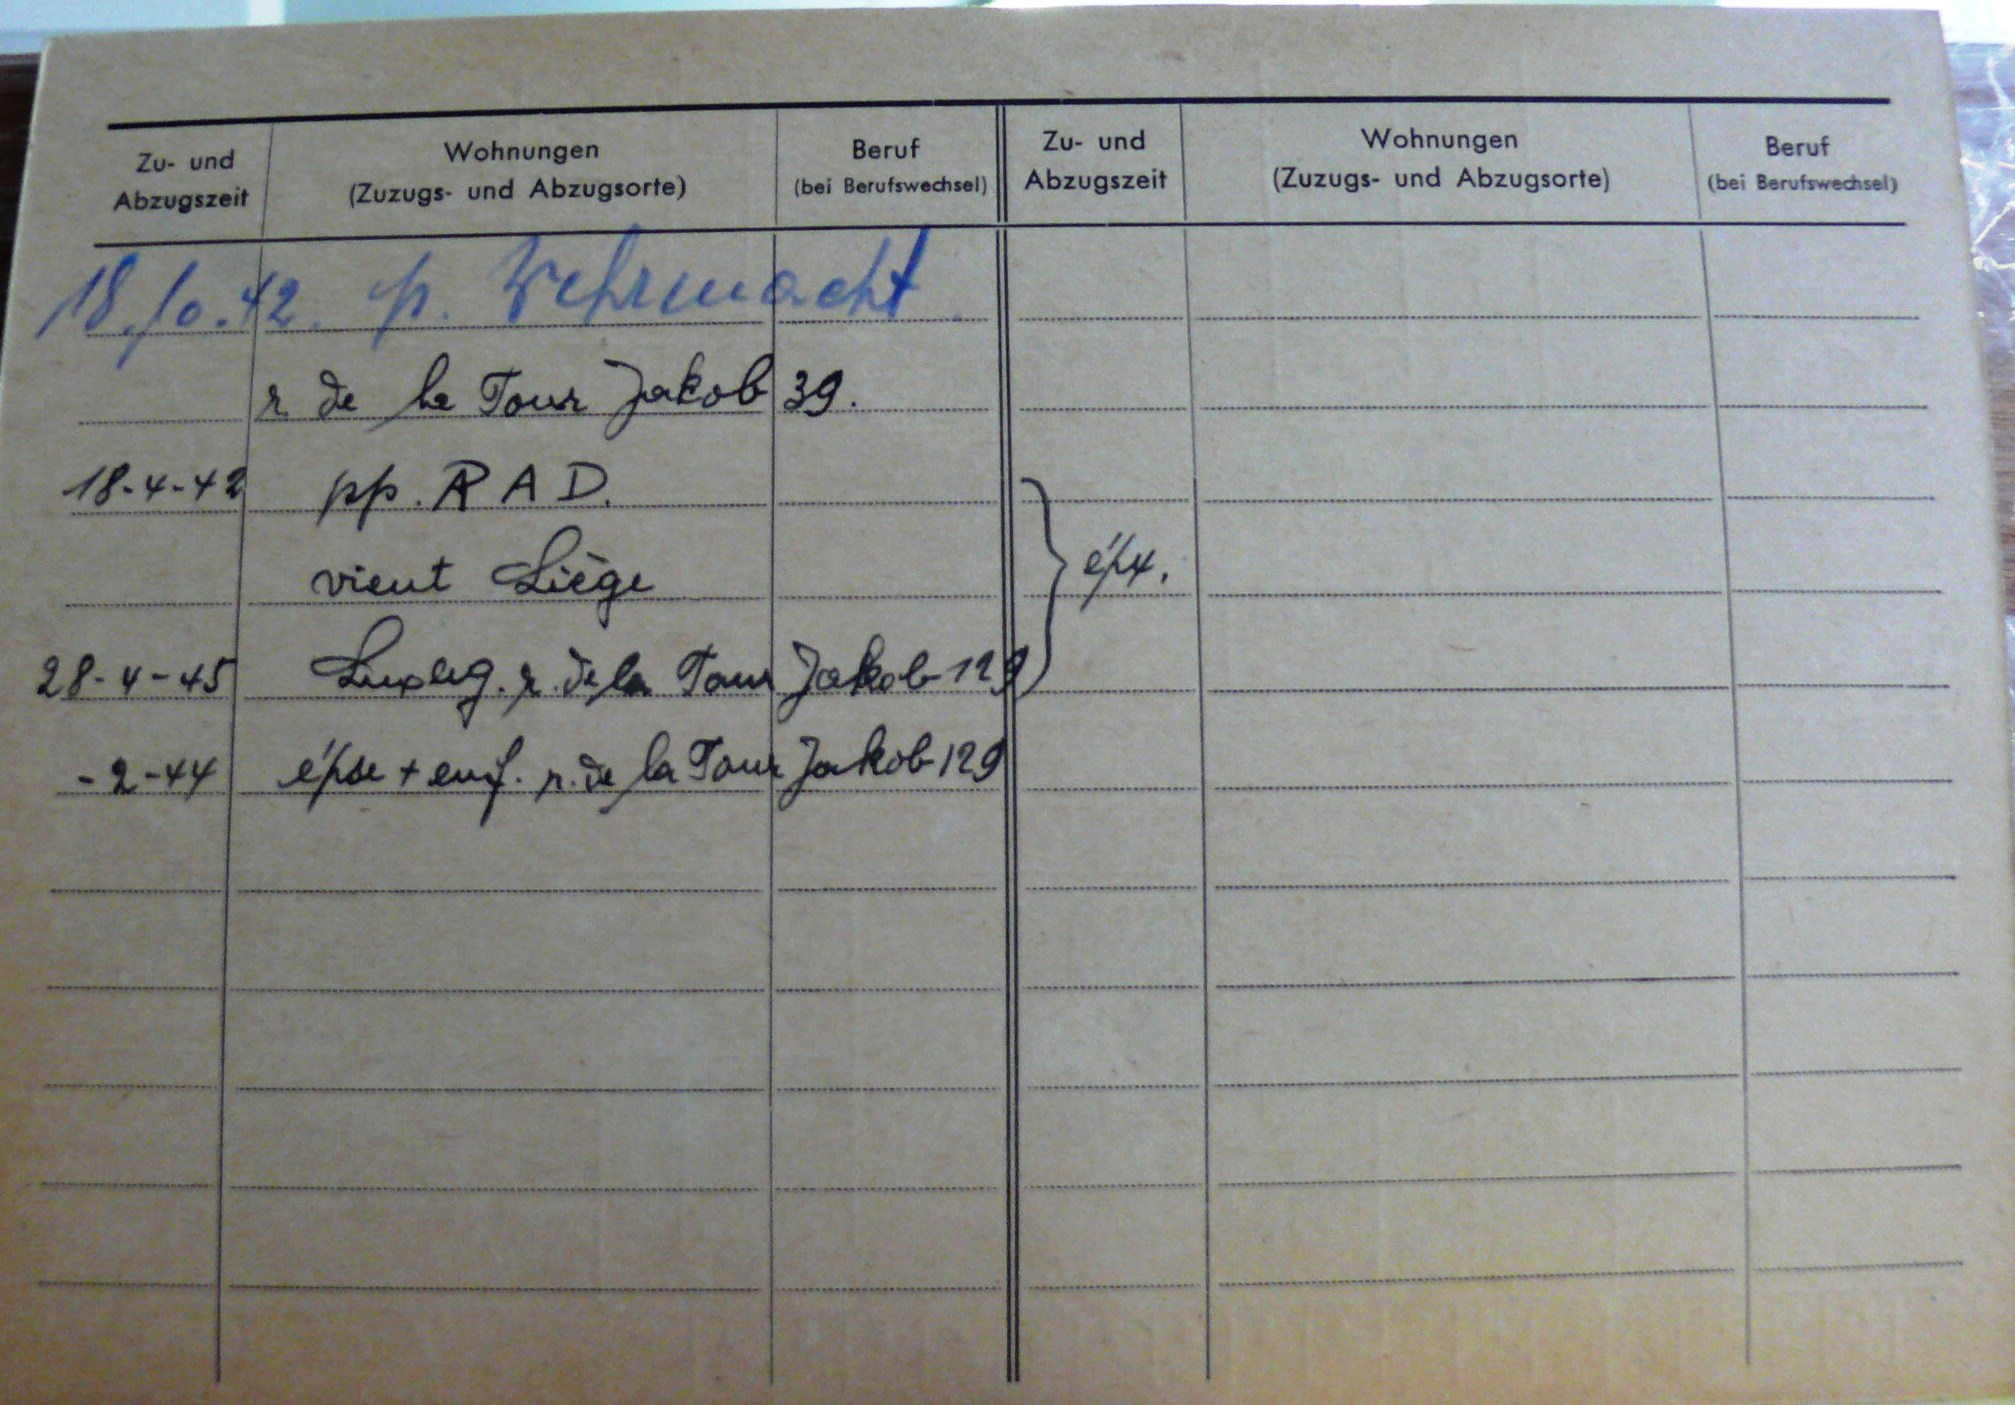 Zu- und Abzugszeit
Wohnungen
(Zuzugs- und Abzugsorte)
Beruf
(bei Berufswechsel)
Zu- und Abzugszeit
Wohnungen
(Zuzugs- und Abzugsorte)
Beruf
(bei Berufswechsel)
18.10.42. p. Wehrmacht.
r de la Tour Jakob 39.
18-4-42 pp. R A D.
vient Liège
épx.
28-4-45 Luxbg. r. de la Tour Jakob 129
-2-44 épse + enf. r. de la Tour Jakob 129